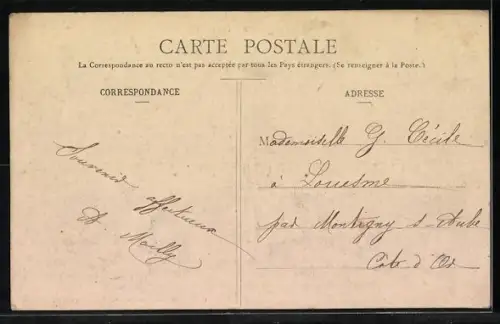 CARTE POSTALE
La Correspondance au recto n'est pas acceptée par tous les Pays étrangers. (Se renseigner à la Poste.)
CORRESPONDANCE
Souvenir
affectueux
A. Mailly
ADRESSE
Mademoiselle G. Cécile
à Louesme
par Montigny s- Aube
Côte d'Or